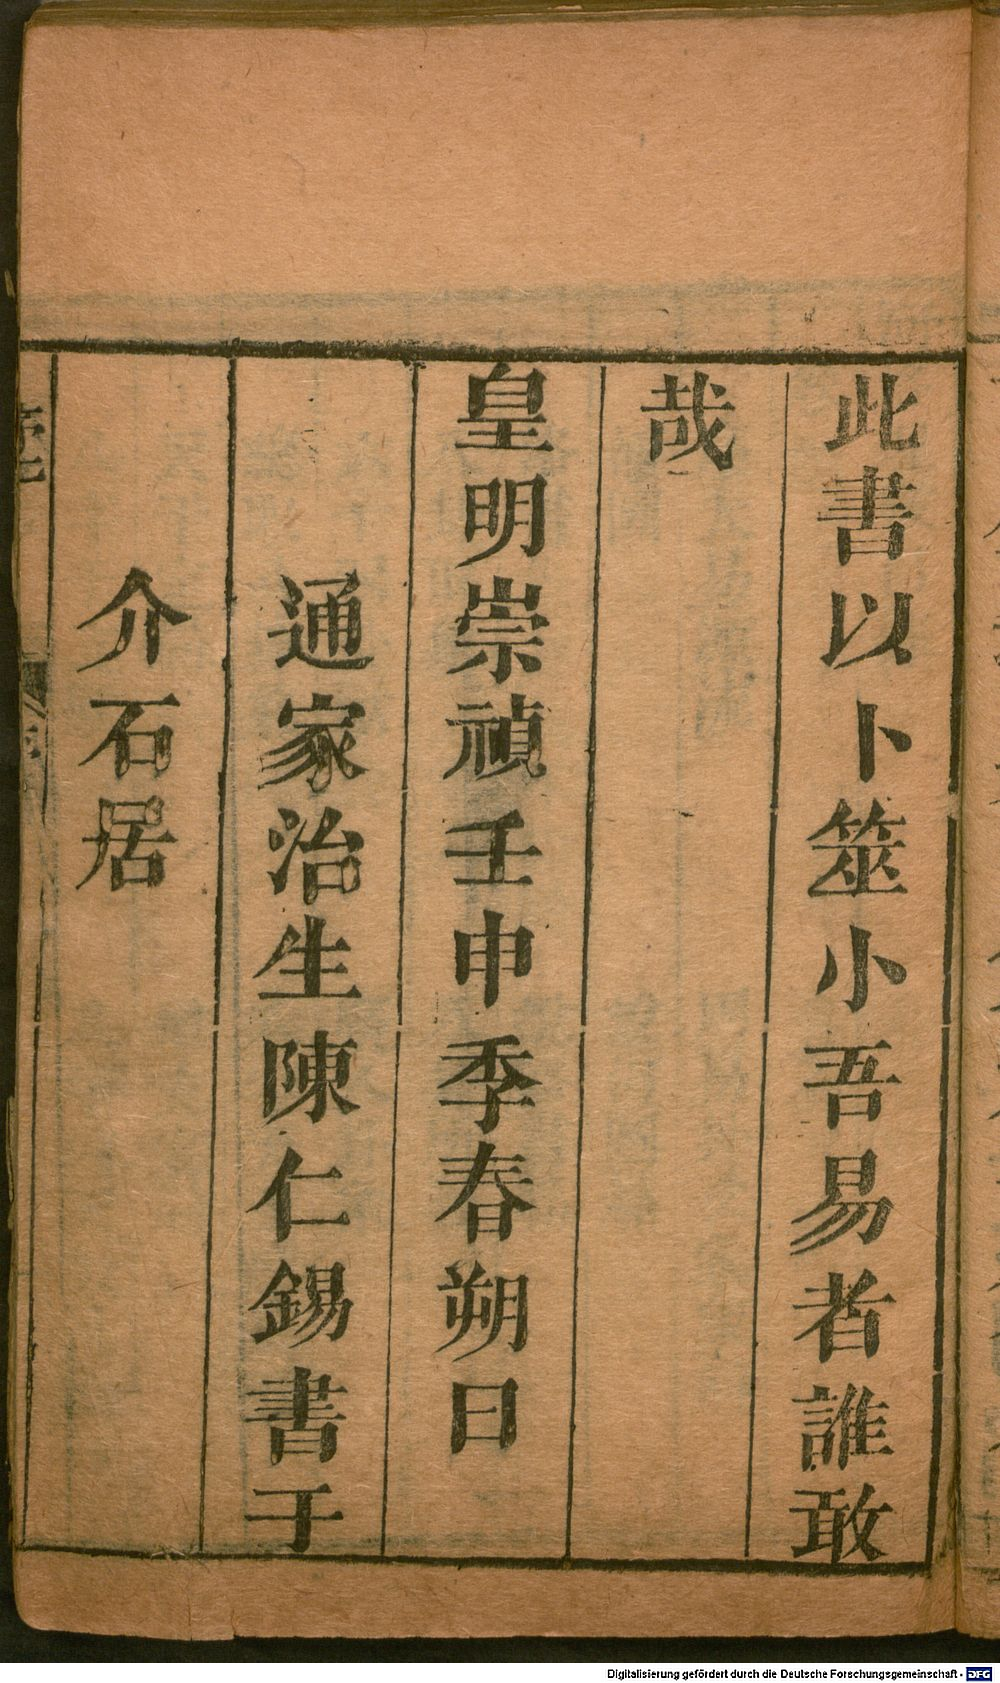 此書以卜筮小吾易者誰敢
哉
皇明崇禎壬申季春朔日
通家治生陳仁錫書于
介石居
Digitalisierung gefördert durch die Deutsche Forschungsgemeinschaft - DFG